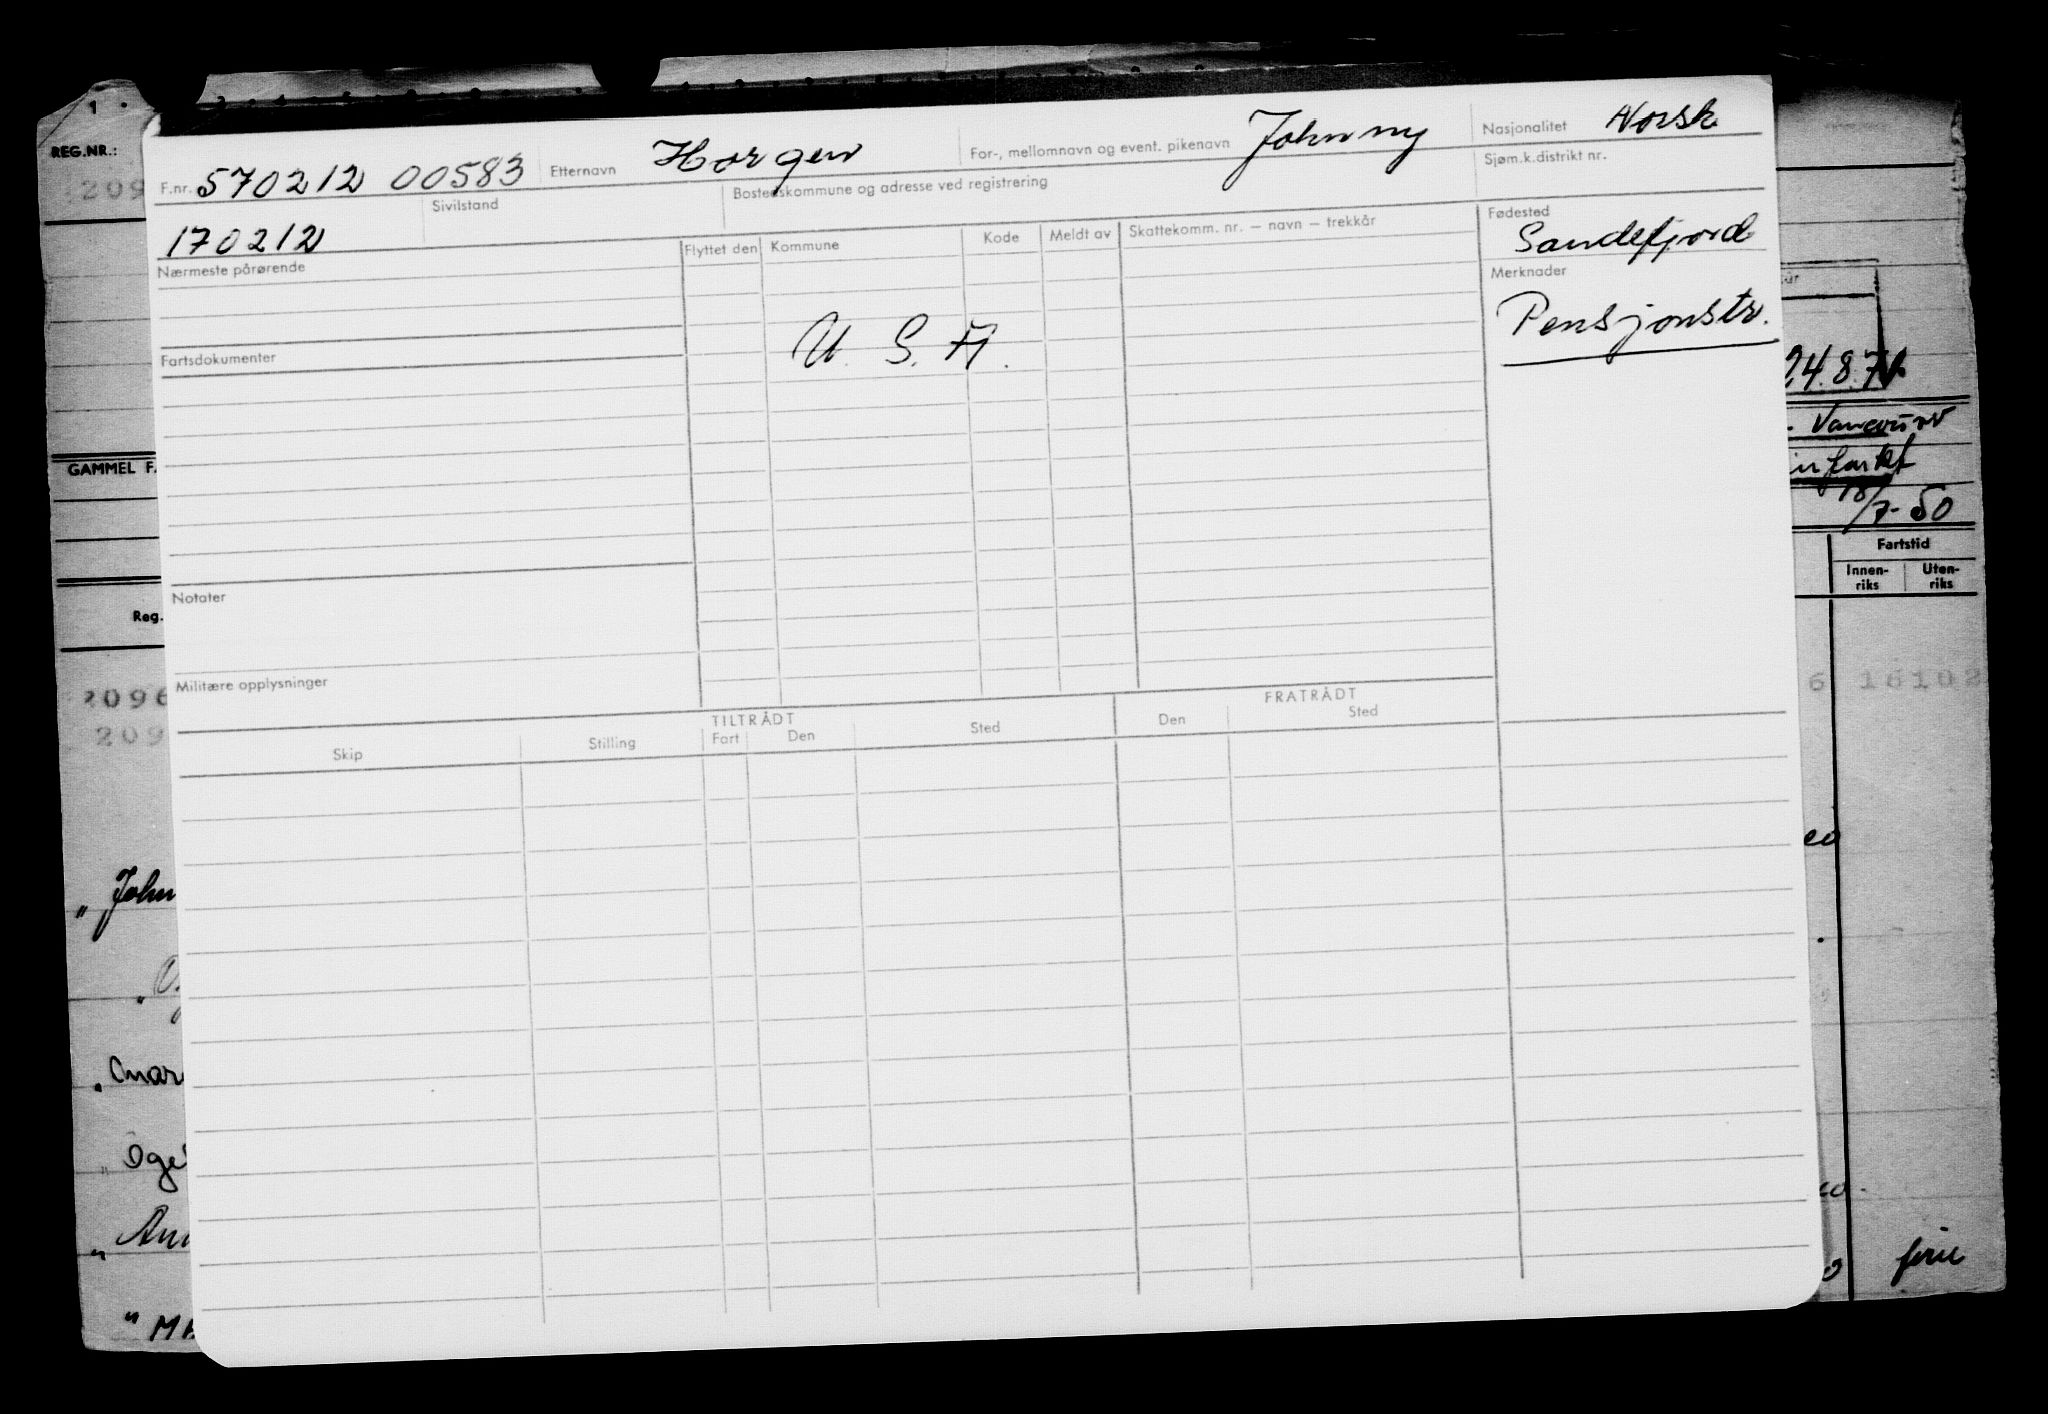 1
REG.NR.:
209
F.nr. 570212 00583 Etternavn Horgen For-, mellomnavn og event. pikenavn Johnny Nasjonalitet Norsk
170212 Sivilstand Bostedskommune og adresse ved registrering Sjøm.k.distrikt nr.
Nærmeste pårørende Flyttet den Kommune Kode Meldt av Skattekomm. nr. — navn — trekkår Fødested
Sandefjord
Merknader
Pensjonstr.
Fartsdokumenter U. S. A.
24.8.71
GAMMEL F.
infarkt
18/7-50
Fartstid
Innen-riks Uten-riks
Notater
Reg.
Militære opplysninger
2096 6 16102
209
TILTRÅDT FRATRÅDT
Skip Stilling Fart Den Sted Den Sted
eo
" John
" Ani
ferie